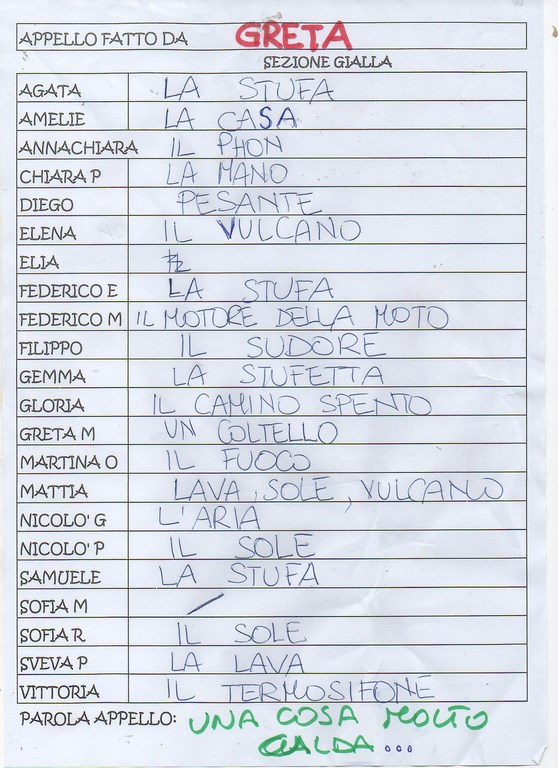 APPELLO FATTO DA GRETA
SEZIONE GIALLA
AGATA LA STUFA
AMELIE LA CASA
ANNACHIARA IL PHON
CHIARA P LA MANO
DIEGO PESANTE
ELENA IL VULCANO
ELIA
FEDERICO E LA STUFA
FEDERICO M IL MOTORE DELLA MOTO
FILIPPO IL SUDORE
GEMMA LA STUFETTA
GLORIA IL CAMINO SPENTO
GRETA M UN COLTELLO
MARTINA O IL FUOCO
MATTIA LAVA, SOLE, VULCANO
NICOLO' G L'ARIA
NICOLO' P IL SOLE
SAMUELE LA STUFA
SOFIA M /
SOFIA R IL SOLE
SVEVA P LA LAVA
VITTORIA IL TERMOSIFONE
PAROLA APPELLO: UNA COSA MOLTO
CALDA...